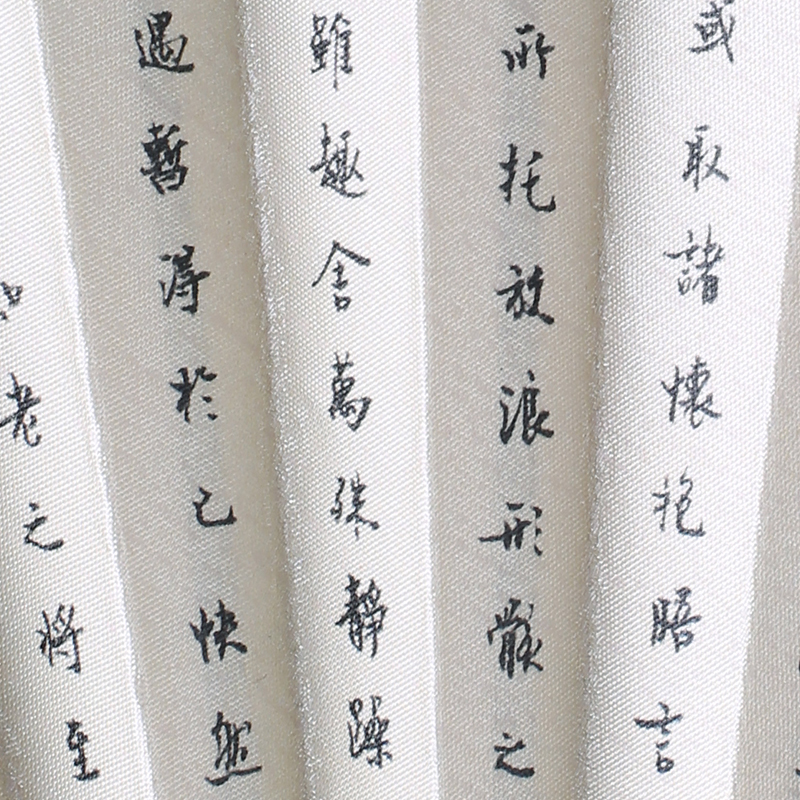 或取諸懷抱晤言
所托放浪形骸之
雖趣舍萬殊靜躁
遇暫得於己快然
老之將至